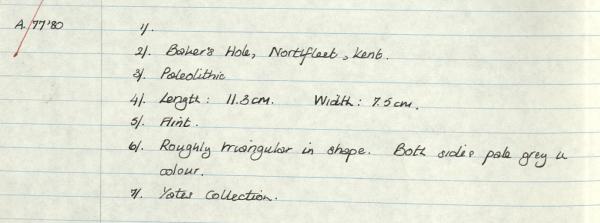 A. 77'80
1/.
2/. Baker's Hole, Northfleet, Kent.
3/. Paleolithic
4/. Length: 11.3cm. Width: 7.5cm.
5/. Flint.
6/. Roughly triangular in shape. Both sides pale grey in
colour.
7/. Yates Collection.